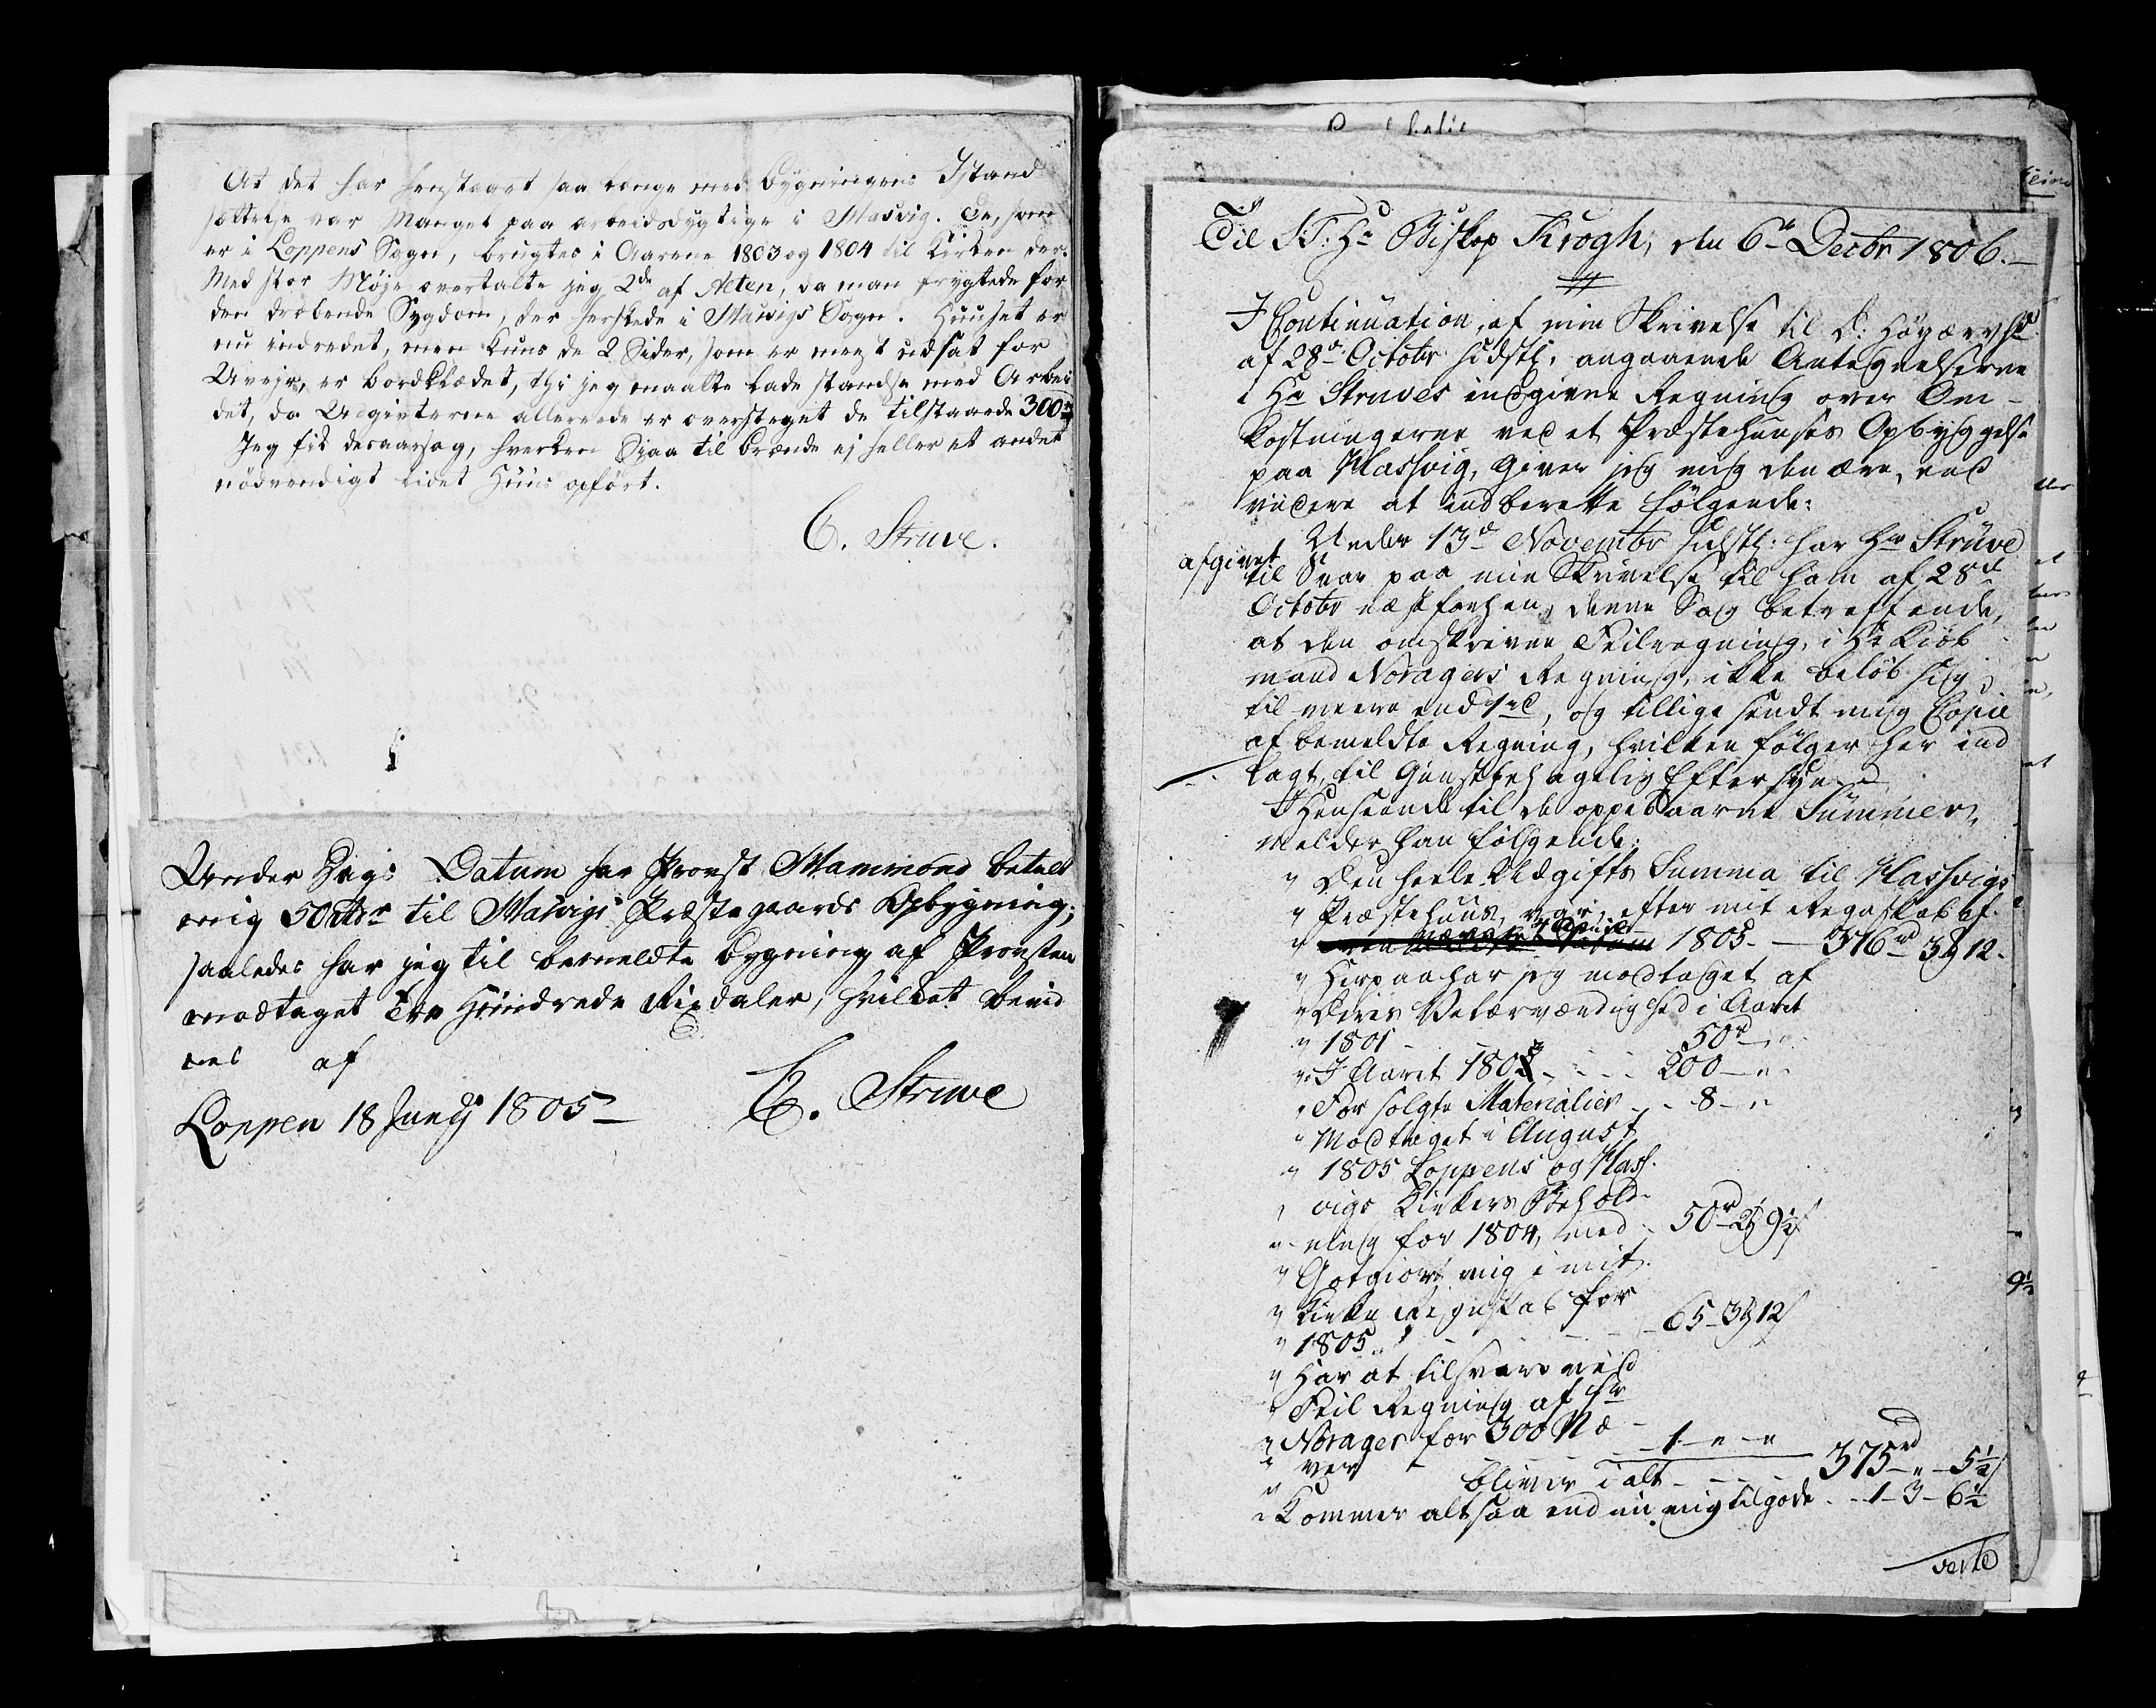 At det har henstaaet saa længe med Bygningens Istand
sættelse var Mangel paa arbeidsdygtige i Masvig. De, som
er i Loppens Sogn, brugtes i Aarene 1803 og 1804 til Kirken der.
Med stor Møje overtalte jeg 2de af Alten, da man frygtede for
den dræbende Sygdom, der herskede i Masvigs Sogn. Huuset er
nu indredet, men kuns de 2 Sider, som er meest udsat for
Uvejr, er bordklædet, thi jeg maatte lade standse med Arbei
det, da Udgivterne allerede er oversteget de tilstaaede 300 rd
Jeg fik desaarsag, hverken Spaa til Brænde ej heller et andet
nödvendigt lidet Huus opfört.
C. Struve.
Under Dags Datum har Provst Mammond betalt
mig 50 rdr til Masvigs Præstegaards Opbygning;
saaledes har jeg til bemeldte Bygning af Provsten
modtaget Tre Hundrede Rixdaler, hvilket bevid
nes af
Loppen 18 Junij 1805 C. Struve
Til S.T. Hr Biskop Krogh, den 6te Decbr 1806.
I Continuation, af min Skrivelse til D: Höyærvhd
af 28de Octobr sidstl. angaaende Antegnelserne
i Hr Struves indgivne Regning over Om-
kostningerne ved et Præstehuuses Opbyggelse
paa Massvig, giver jeg mig den ære, end
videre at indberette følgende:
Under 13de Novembr sidstl: har Hr Struve
afgivet
til Svar paa min Skrivelse til ham af 28de
Octobr næstforhen, denne Sag betreffende,
at den omskrevne Feilregning, i Hr Kiöb
mand Norager's Regning, ikke beløb sig
til meere end 1 rd, og tillige sendt mig Copie
af bemeldte Regning, hvilken følger her ind
lagt, til Gunstbehagelig Eftersyn.
I Henseende til de oppebaarne Summer,
melder han følgende:
" Den heele Udgifts Summa til Massvigs
" Præstehuus, var, efter mit Regnskab af
" 1805 - 376 rd 3 12.
" Herpaa har jeg modtaget af
" Deres Velærværdighed i Aaret
" 1801 - 50 rd "
" I Aaret 180 - - - 200 - "
" For solgte Materialier - - 8 - "
" Modtaget i August
" 1805 Loppens og Mass-
" vigs Kirkers Behold-
" ning for 1804, med - 50 r 2 9½
" Godtgiort mig i mit
" Kirke Regnskab for
" 1805 - - - 65 - 3 12
" Har at tilsvare ved
" Feil Regning af Hr
" Norager for 300 Næ
" ver - 1 - " - "
" bliver i alt - - - 375 rd - " - 5½
" Kommer altsaa endnu mig tilgode - - 1 - 3 - 6½
verte